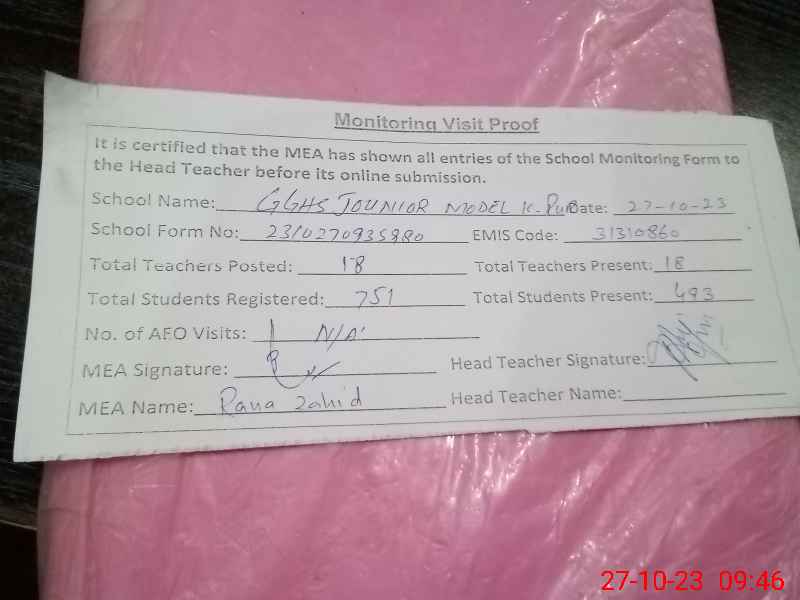 Monitoring Visit Proof
It is certified that the MEA has shown all entries of the School Monitoring Form to
the Head Teacher before its online submission.
School Name: GGHS JOUNIOR MODEL K-Pur Date: 27-10-23
School Form No: 2310270935880 EMIS Code: 31310860
Total Teachers Posted: 18 Total Teachers Present: 18
Total Students Registered: 751 Total Students Present: 493
No. of AEO Visits: N/A
MEA Signature: Head Teacher Signature:
MEA Name: Rana Zahid Head Teacher Name:
27-10-23 09:46